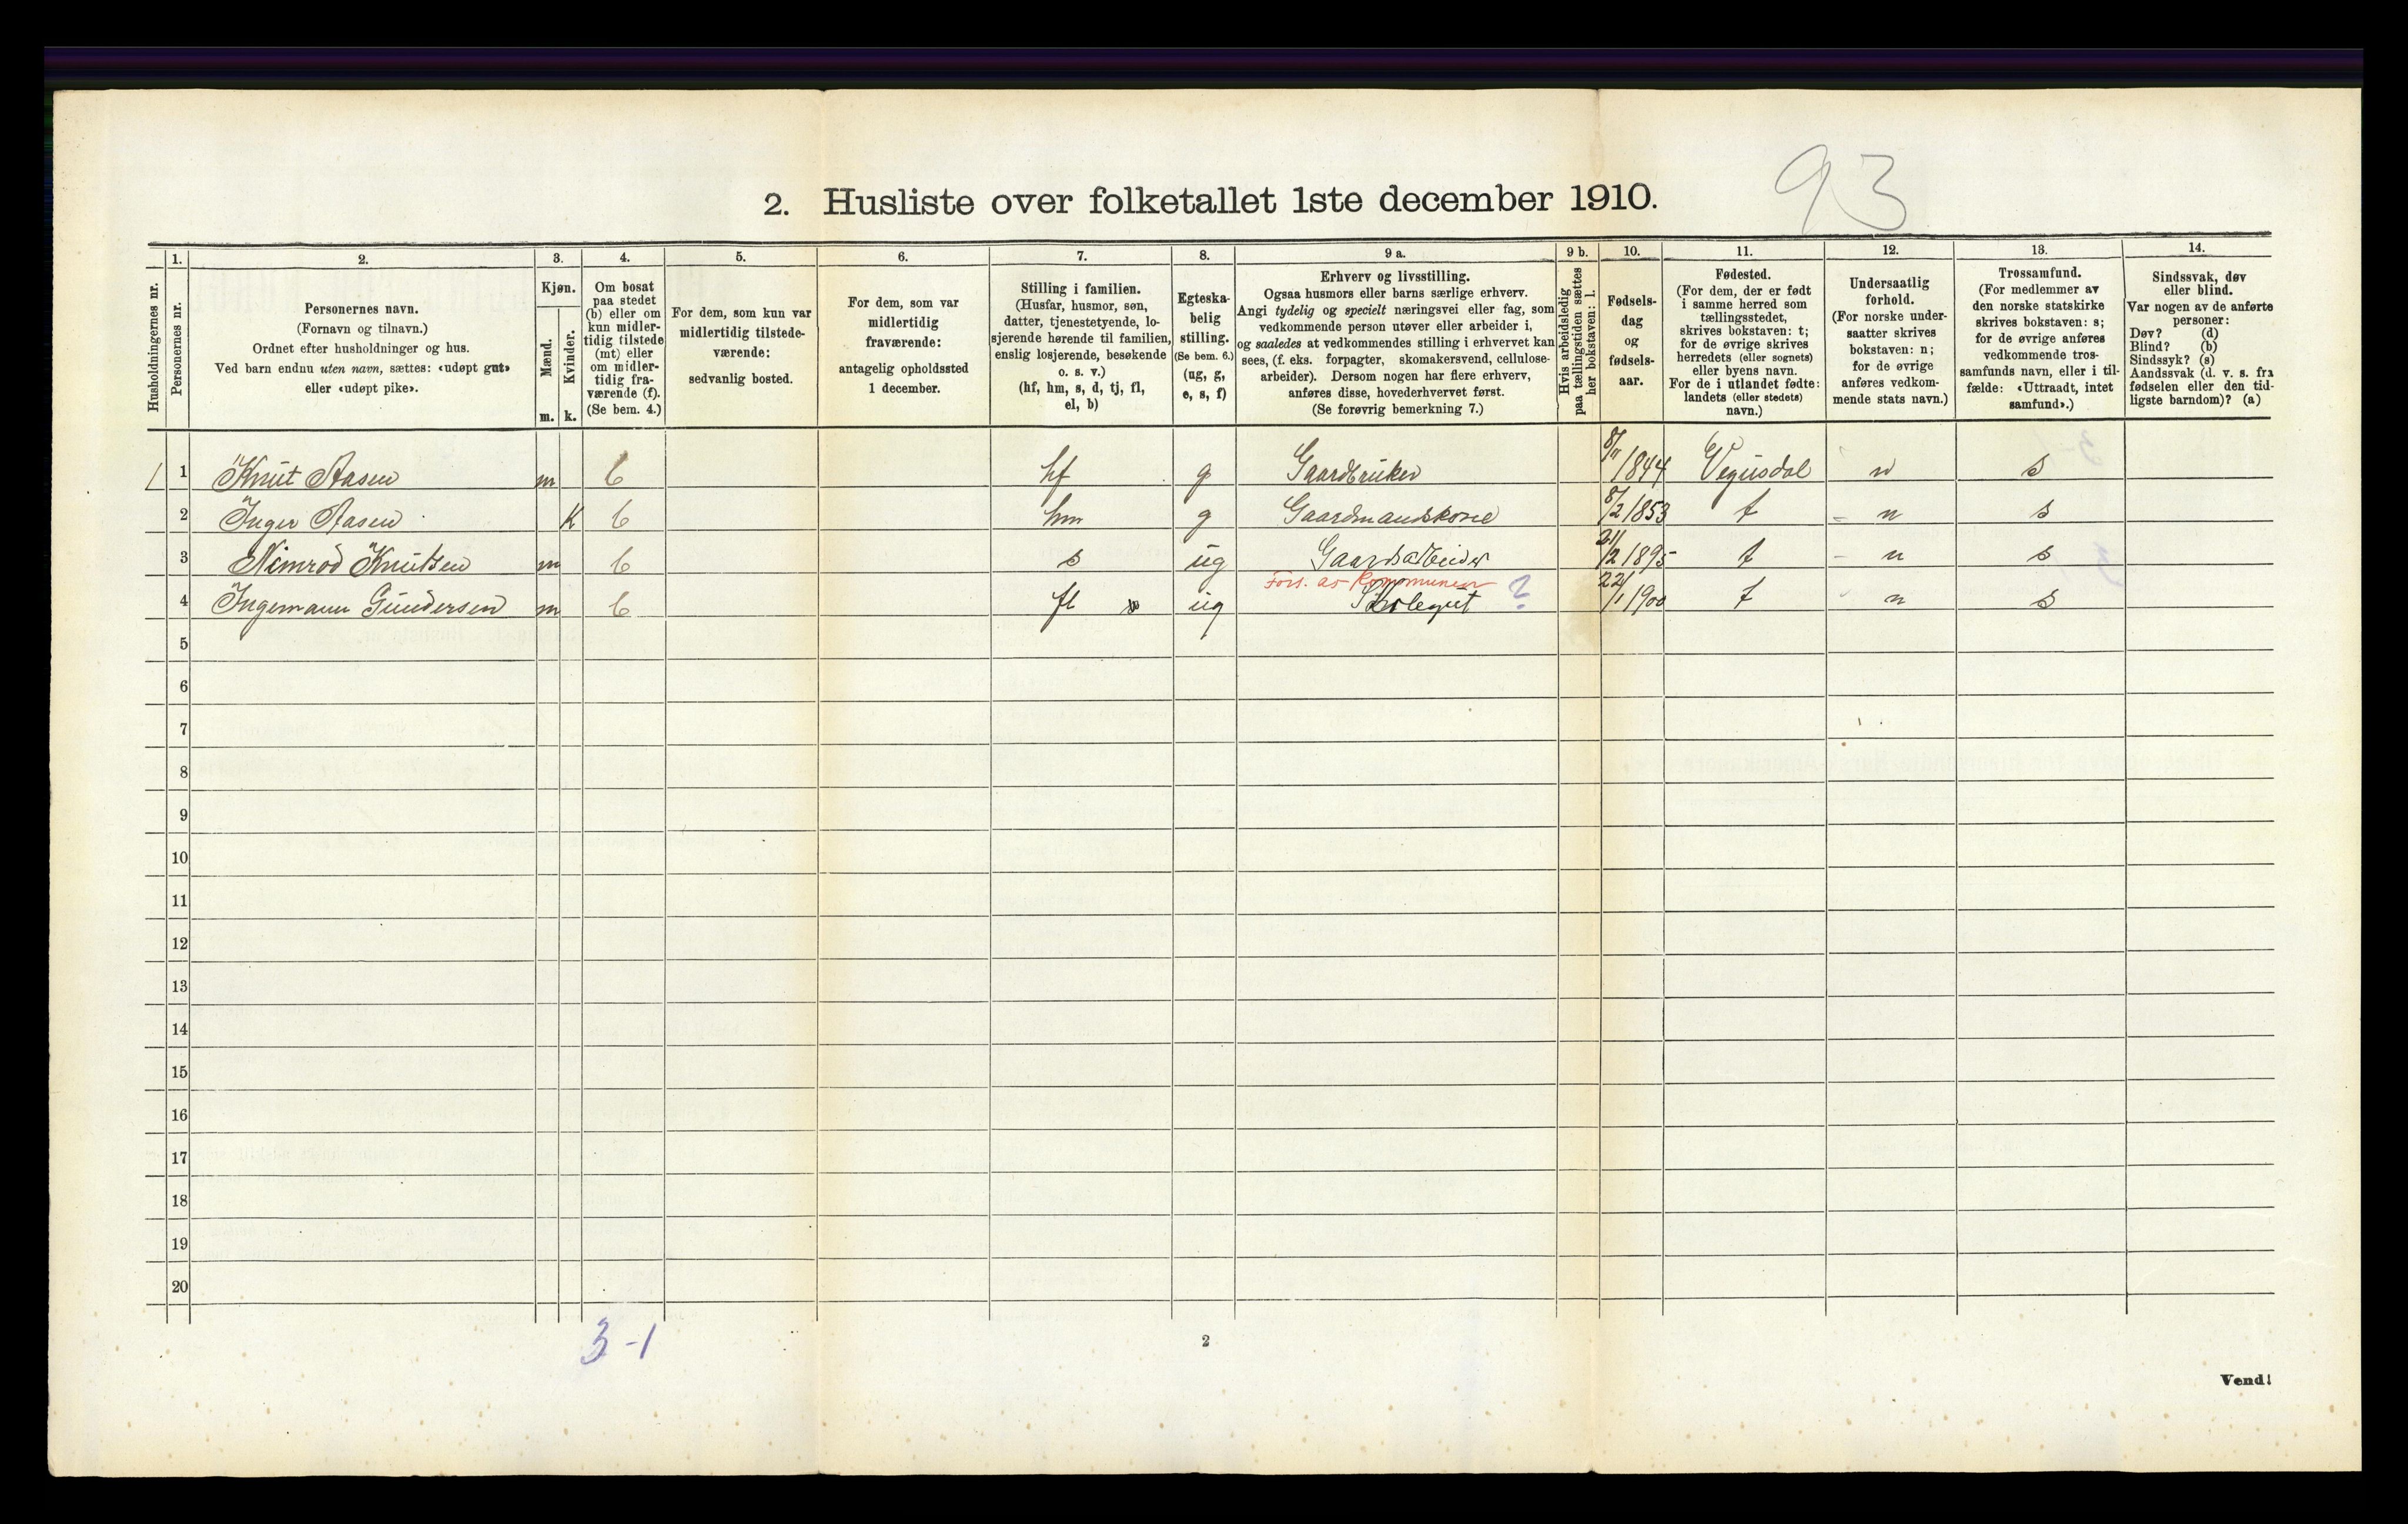 93
2. Husliste over folketallet 1ste december 1910.
Husholdningernes nr.
1.
Personernes nr.
2.
Personernes navn.
(Fornavn og tilnavn.)
Ordnet efter husholdninger og hus.
Ved barn endnu uten navn, sættes: «udøpt gut»
eller «udøpt pike».
3.
Kjøn.
Mænd.
Kvinder.
m. k.
4.
Om bosat
paa stedet
(b) eller om
kun midler-
tidig tilstede
(mt) eller
om midler-
tidig fra-
værende (f).
(Se bem. 4.)
5.
For dem, som kun var
midlertidig tilstede-
værende:
sedvanlig bosted.
6.
For dem, som var
midlertidig
fraværende:
antagelig opholdssted
1 december.
7.
Stilling i familien.
(Husfar, husmor, søn,
datter, tjenestetyende, lo-
sjerende hørende til familien,
enslig losjerende, besøkende
o. s. v.)
(hf, hm, s, d, tj, fl,
el, b)
8.
Egteska-
belig
stilling.
(Se bem. 6.)
(ug, g,
e, s, f)
9 a.
Erhverv og livsstilling.
Ogsaa husmors eller barns særlige erhverv.
Angi tydelig og specielt næringsvei eller fag, som
vedkommende person utøver eller arbeider i,
og saaledes at vedkommendes stilling i erhvervet kan
sees, (f. eks. forpagter, skomakersvend, cellulose-
arbeider). Dersom nogen har flere erhverv,
anføres disse, hovederhvervet først.
(Se forøvrig bemerkning 7.)
9 b.
Hvis arbeidsledig
paa tællingstiden sættes
her bokstaven: l.
10.
Fødsels-
dag
og
fødsels-
aar.
11.
Fødested.
(For dem, der er født
i samme herred som
tællingsstedet,
skrives bokstaven: t;
for de øvrige skrives
herredets (eller sognets)
eller byens navn.
For de i utlandet fødte:
landets (eller stedets)
navn.)
12.
Undersaatlig
forhold.
(For norske under-
saatter skrives
bokstaven: n;
for de øvrige
anføres vedkom-
mende stats navn.)
13.
Trossamfund.
(For medlemmer av
den norske statskirke
skrives bokstaven: s;
for de øvrige anføres
vedkommende tros-
samfunds navn, eller i til-
fælde: «Uttraadt, intet
samfund».)
14.
Sindssvak, døv
eller blind.
Var nogen av de anførte
personer:
Døv? (d)
Blind? (b)
Sindssyk? (s)
Aandssvak (d. v. s. fra
fødselen eller den tid-
ligste barndom)? (a)
1 1 Knut Aasen m b hf g Gaardbruker 8/11 1844 Vegusdal n s
2 Inger Aasen K b hm g Gaardmandskone 8/2 1853 t n s
3 Nimrod Knutsen m b s ug Gaardsarbeider 21/2 1895 t n s
Fors. av Kommunen
4 Ingemann Gundersen m b fl ug Skolegut ? 22/1 1900 t n s
5
6
7
8
9
10
11
12
13
14
15
16
17
18
19
20
3-1
2
Vend!